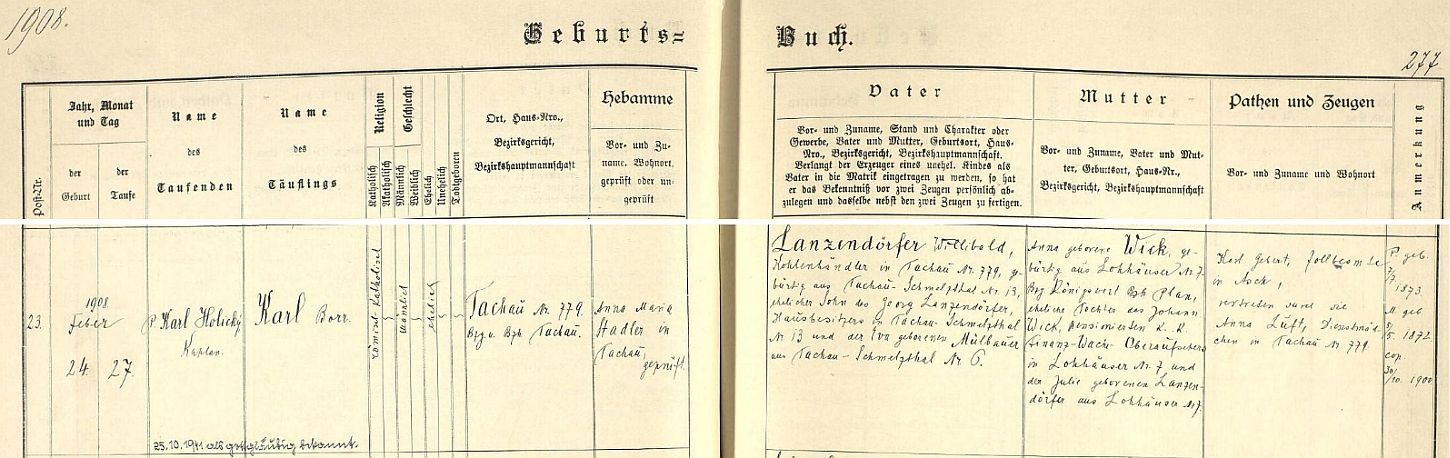 1908.
Geburts=
Buch.
277
Post-Nr.
Jahr, Monat
und Tag
der
Geburt
der
Taufe
Name
des
Taufenden
Name
des
Täuflings
Religion
Katholisch
Akatholisch
Geschlecht
Männlich
Weiblich
Ehelich
Unehelich
Todtgeboren
Ort, Haus-Nro.,
Bezirksgericht,
Bezirkshauptmannschaft
Hebamme
Vor- und Zu-
name, Wohnort,
geprüft oder un-
geprüft
Vater
Vor- und Zuname, Stand und Charakter oder
Gewerbe, Vater und Mutter, Geburtsort, Haus-
Nro., Bezirksgericht, Bezirkshauptmannschaft.
Verlangt der Erzeuger eines unehel. Kindes als
Vater in die Matrik eingetragen zu werden, so hat
er das Bekenntniß vor zwei Zeugen persönlich ab-
zulegen und dasselbe nebst den zwei Zeugen zu fertigen.
Mutter
Vor- und Zuname, Vater und Mut-
ter, Geburtsort, Haus-Nr.,
Bezirksgericht, Bezirkshauptmannschaft
Pathen und Zeugen
Vor- und Zuname und Wohnort
Anmerkung
23.
1908
Feber
24.
27.
P. Karl Holický
Kaplan.
Karl Borr.
römisch-katholisch
männlich
ehelich
Tachau Nr. 779.
Bzg u. Bzh Tachau.
Anna Maria
Stadler in
Tachau,
geprüft.
Lanzendörfer Willibald,
Kohlenhändler in Tachau Nr. 779, ge-
bürtig aus Tachau-Schmelzthal Nr. 13,
ehelicher Sohn des Georg Lanzendörfer,
Hausbesitzers in Tachau-Schmelzthal
Nr 13 und der Eva geborenen Mülbauer
aus Tachau-Schmelzthal Nr. 6.
Anna geborene Wick, ge-
bürtig aus Lohhäuser Nr 7.
Bzg Königswart Bzh Plan,
eheliche Tochter des Johann
Wick, pensionierten k. k.
Finanz-Wach-Oberaufsehers
in Lohhäuser Nr. 7 und
der Julie geborenen Lanzen-
dörfer aus Lohhäuser Nr 7.
Karl Gebert,
in Asch,
vertreten durch sie
Anna Luft, Dienstmäd-
chen in Tachau Nr 779.
P. geb.
1873.
M. geb
1872.
cop.
30/10. 1900
25.10.1941 als gottgläubig bekannt.